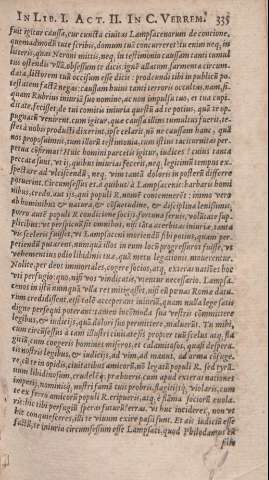 IN LIB. I. ACT. II. IN C. VERREM. 335
fuit igitur caussa, cur cuncta ciuitas Lampsacenorum de concione,
quemadmodũ tute scribis, domum tuã concurreret? tu enim neq; in
literis, quas Neroni mittis, neq; in testimonio caussam tanti tumul
tus ostendis vllã. obsessum te dicis: ignē allatum: sarmenta circum-
data, lictorem tuũ occisum esse dicis: prodeundi tibi in publicũ po-
testatem factã negas: caussam huius tanti terroris occultas. nam, si
quam Rubrius iniuriã suo nomine, ac non impulsu tuo, et tua cupi-
ditate, fecisset, de tui comitis iniuria questũ ad te potius, quã te op-
pugnatũ venirent. cum igitur, quæ caussa illius tumultus fuerit, te-
stes à nobis producti dixerint, ipse celarit, nõ ne caussam hanc, quã
nos proposuimus, tum illorũ testimonia, tum istius taciturnitas per-
petua
peccata sunt, vt ij, quibus iniurias fecerit, neq; legitimũ tempus ex-
spectare ad vlciscendũ, neq; vim tantã doloris in posterũ differre
potuerint. Circumsessus es. à quibus? à Lampsacenis. barbaris homi
nibus, credo, aut ijs, qui populi R. nomē contemnerēt: immo verò
ab hominibus & natura, & cõsuetudine, & disciplina lenissimis:
porro autē populi R. conditione socijs, fortuna seruis, volũtate sup-
plicibus: vt perspicuũ sit omnibus, nisi tãta acerbitas iniuriæ, tanta
vis sceleris fuisset, vt Lampsaceni moriendũ sibi potius, quam per-
petiendũ putarent, numquã illos in eum locũ progressuros fuisse, vt
vehementius odio libidinis tuæ, quã metu legationis mouerentur.
Nolite, per deos immortales, cogere socios, atq; exteras nationes hoc
vti perfugio: quo, nisi vos vindicatis, vtentur necessario. Lampsa-
cenos in istũ nunquã vlla res mitigasset, nisi eũ pœnas Romæ datu-
rum credidissent. etsi talē acceperant iniuriã, quam nulla lege satis
digne persequi poterant: tamen incõmoda sua vestris cõmittere
legibus, & iudicijs, quã dolori suo permittere, maluerũt. Tu mihi,
cum circũsessus à tam illustri ciuitate sis propter tuũ scelus atq; fla
giciũ, cum coegeris homines miseros, et calamitosos, quasi despera-
tis nostris legibus, & iudicijs, ad vim, ad manus, ad arma cõfuge-
re, cũ te in opidis, ciuitatibus amicorũ nõ legatũ populi R. sed tyrã-
num libidinosum, crudelēq; præbueris, cum apud exteras nationes
imperij, nominisq; nostri famã tuis probris, flagitijsq; violaris, cum
te ex ferro amicorũ populi R. eripueris, atq; è flãma sociorũ euola-
ris: hic tibi perfugiũ speras futurũ? erras. vt huc incideres, non vt
hic conquiesceres, illi te viuum exire passi sunt. Et ais iudiciũ esse
factũ, te iniuria circumsessum esse Lampsaci, quod Philodamus cũ
filio